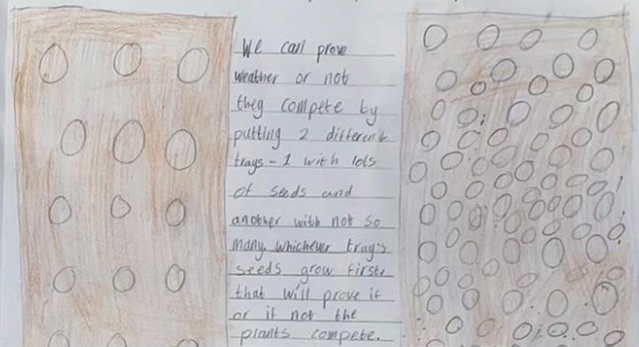 We can prove
weather or not
they compete by
putting 2 different
trays - 1 with lots
of seeds and
another with not so
many whichever tray's
seeds grow first
that will prove if
or if not the
plants compete.